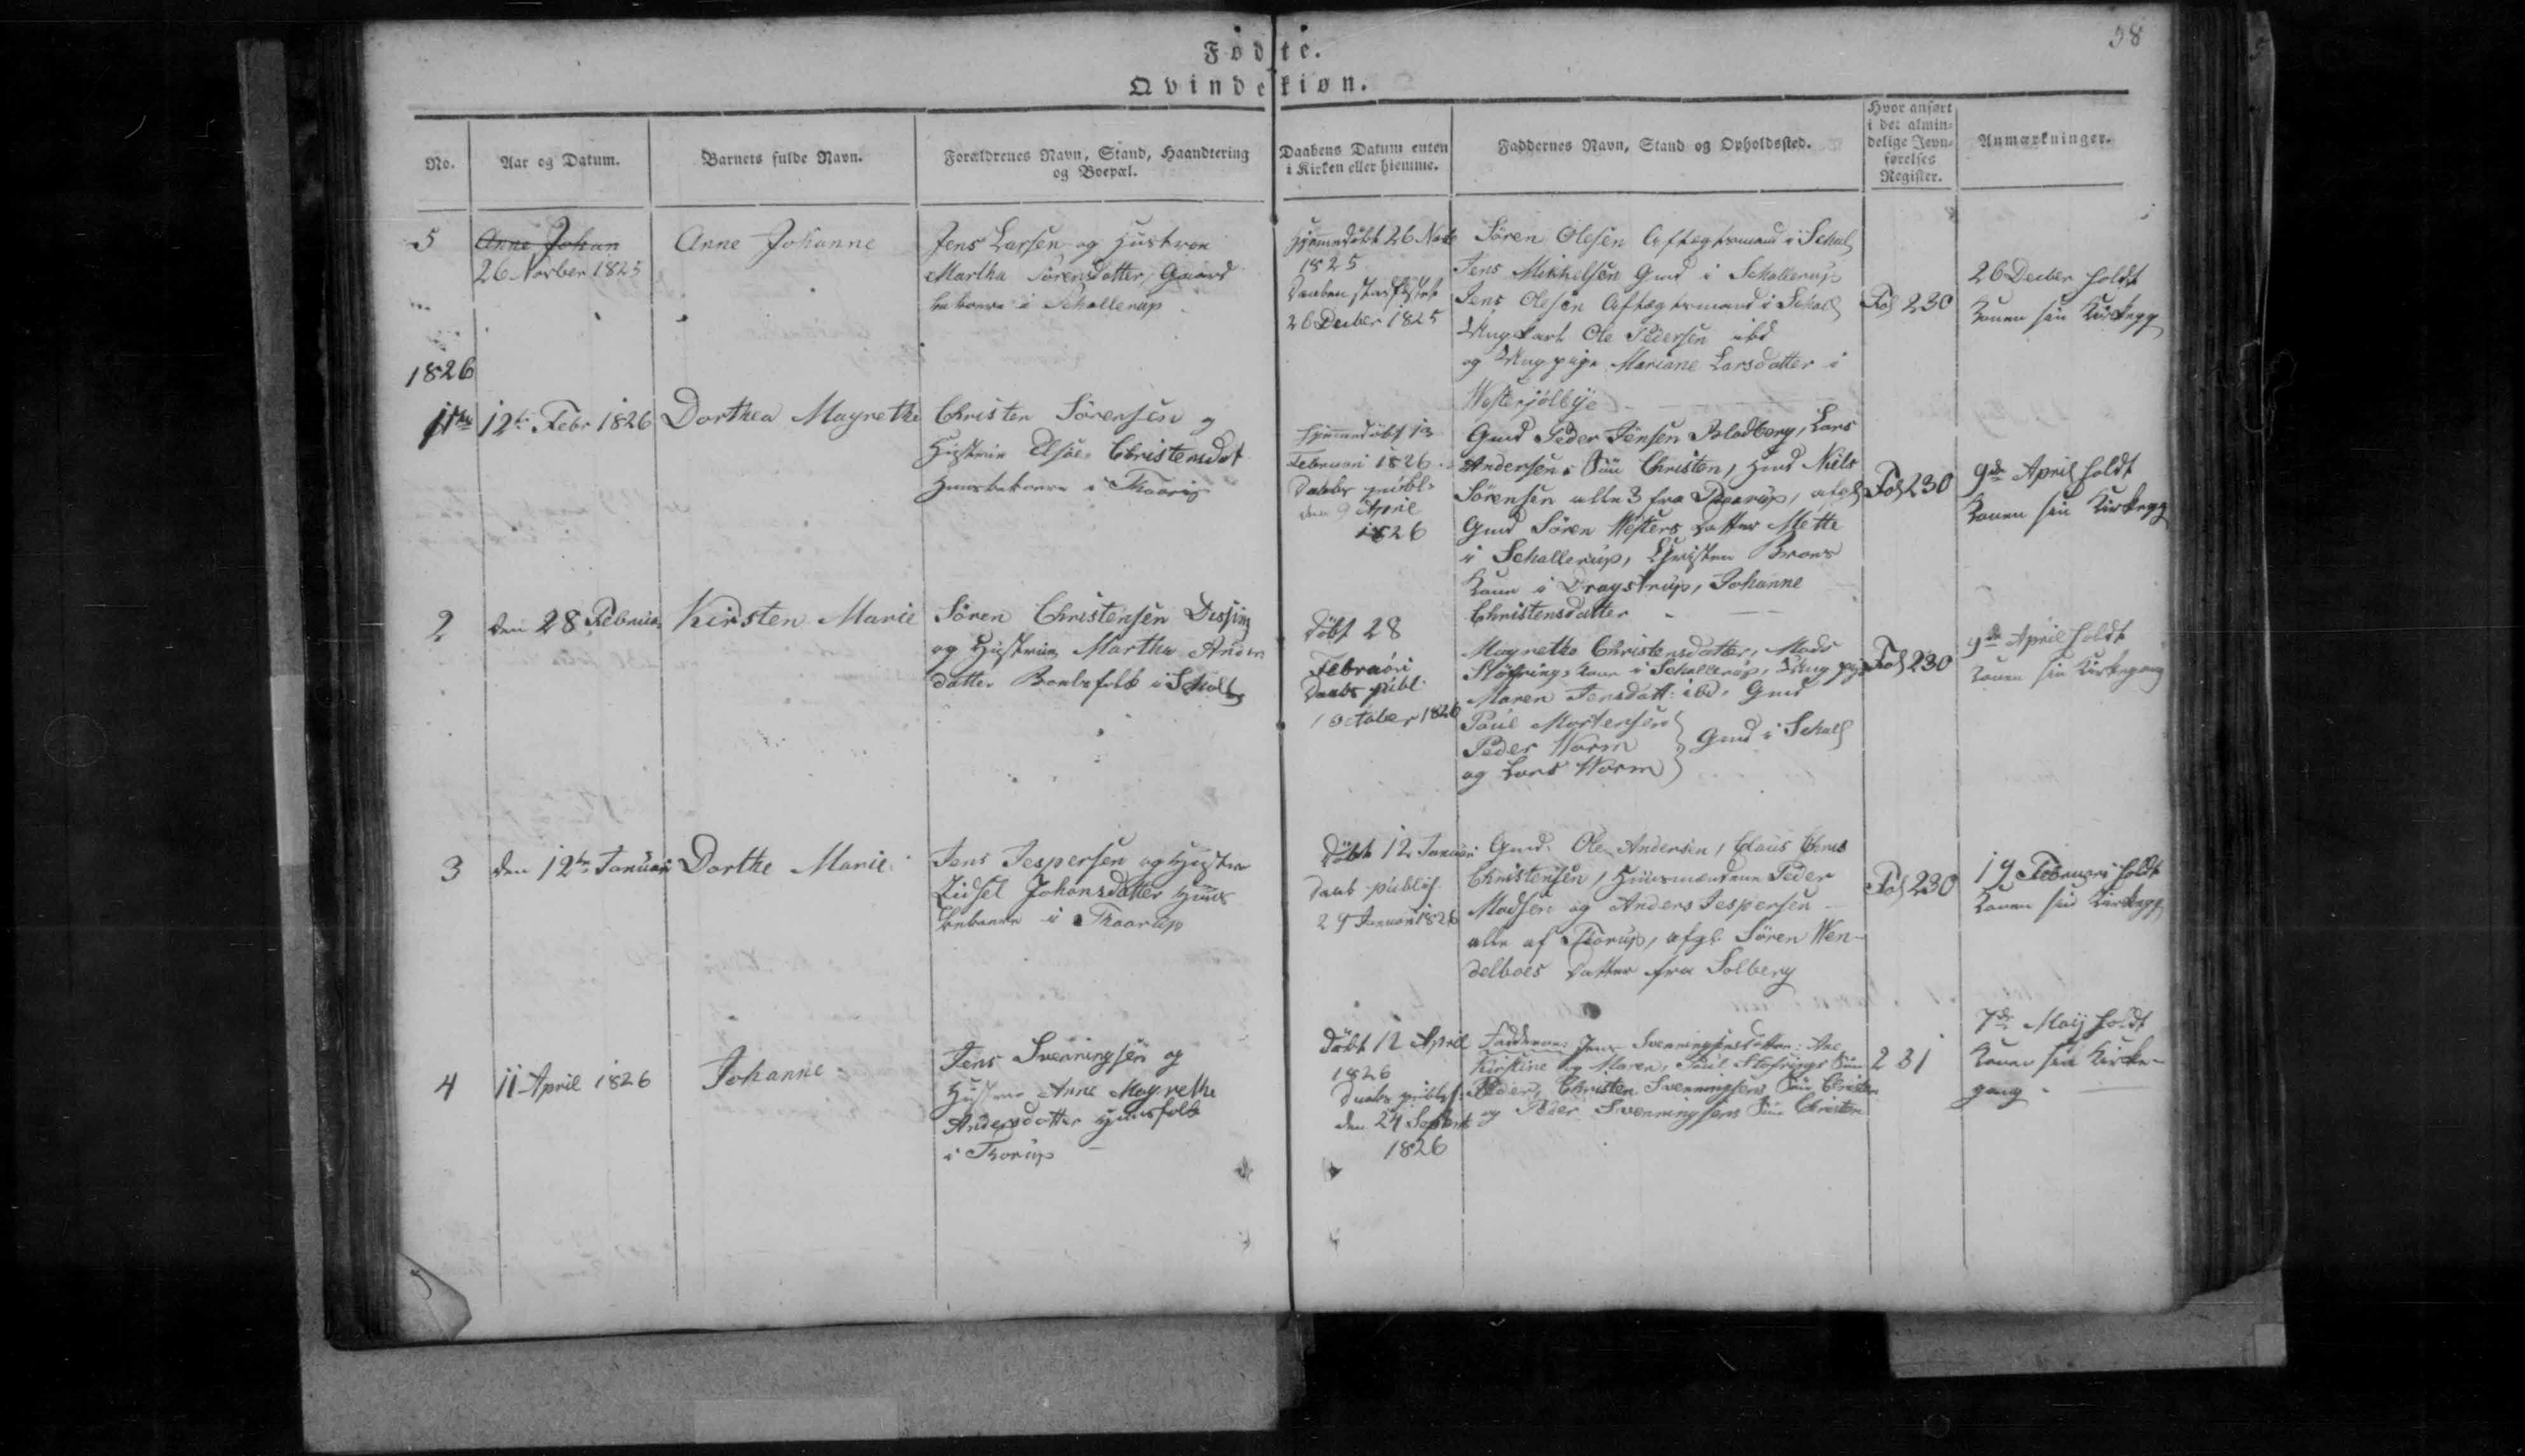 58
Fødte.
Qvindekiøn.
No.
Aar og Datum.
Barnets fulde Navn.
Forældrenes Navn, Stand, Haandtering
og Boepæl.
Daabens Datum enten
i Kirken eller hiemme.
Faddernes Navn, Stand og Opholdssted.
Hvor anført
i det almin-
delige Jevn-
førelses
Register.
Anmærkninger.
5
Anne Johan
26 Novber 1825
Anne Johanne
Jens Larsen og Hustroe
Martha Sörensdatter, Gaard
i Schallerup
Hjemmedöbt 26 Novb
1825
Daaben
26 Decber 1825
Sören Olesen Aftægtsmand i Schall
Jens Mikkelsen Gmd i Schallerup
Jens Olesen Aftægtsmand i Schall
Ungkarl Ole Pedersen ibd
og Mariane Larsdatter i
Westerjölbye
Fol 230
26 Decber holdt
Konen sin Kirkegg
1826
1
12te Febr 1826
Dorthea Magrethe
Christen Sörensen og
Hustrue Christensdat
i Thorup
Hjemmedöbt 13
Februari 1826
Daabs publ.
den 9 April
1826
Gmd Peder Jensen Lars
Andersens Sön Christen, Hmd Niels
Sörensen alle 3 fra
Gmd Sören Westers Datter Mette
i Schallerup, Christen
Kone i Dragstrup, Johanne
Christensdatter
Fol 230
9de April holdt
Konen sin Kirkegg
2
den 28 Februar
Kirsten Marie
Sören Christensen Dissing
og Hustrue Martha Anders
datter i Schall
Döbt 28
Februari
Daabs publ.
1 October 1826
Magrethe Christensdatter, Mads
Kone i Schallerup,
Maren Jensdatt: ibd. Gmd
Poul Mortensen
Peder Worm
og Lars Worm
Gmd i Schall
Fol 230
9de April holdt
Konen sin Kirkegang
3
den 12te Januari
Dorthe Marie
Jens Jespersen og Hustrue
Zidsel Johansdatter Huus
i Thorup
Döbt 12 Januari
Daab publis.
29 Januari 1826
Gmd Ole Andersen, Claus
Christensen, Huusmændene Peder
Madsen og Anders Jespersen
alle af Thorup, Sören Wen-
delboes Datter fra Solberg
Fol 230
19 Februari holdt
Konen sin Kirkegg
4
11 April 1826
Johanne
Jens Svenningsen og
Hustrue Anne Magrethe
Andersdatter Huusfolk
i Thorup
Döbt 12 April
1826
Daabs publis:
den 24 Septemb
1826
Fadderne: Jens Svenningsens Ane
Kirstine og Maren, Poul Sön
Peder, Christen Svenningsens Sön Christen
og Peder Svenningsens Sön Christen
231
7de Maij holdt
Konen sin Kirke-
gang